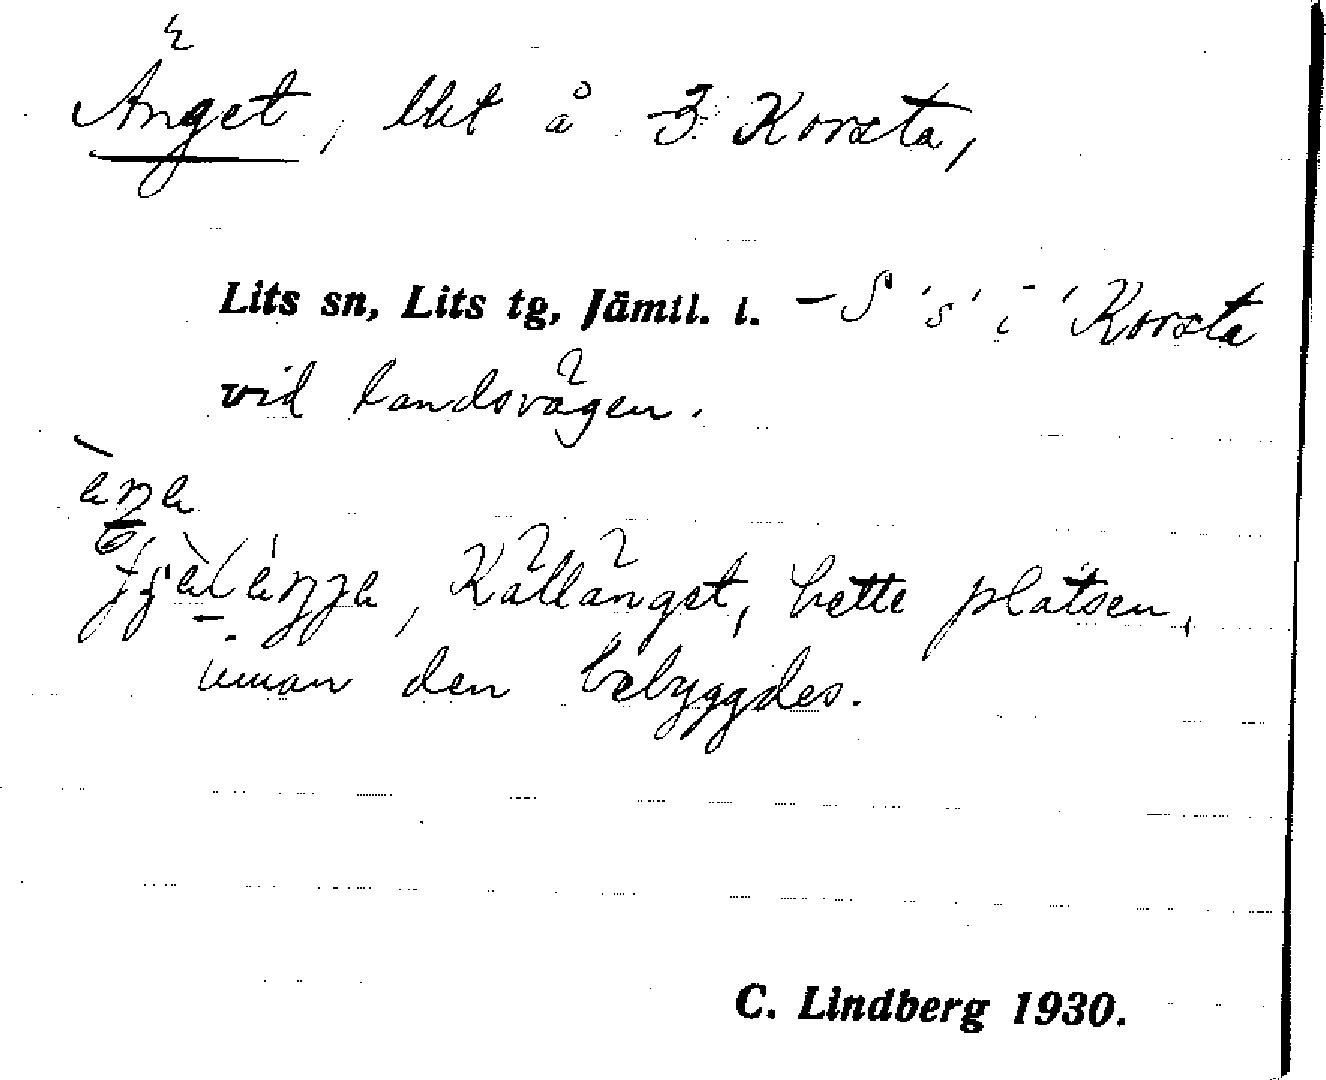 Änget, lht å 3 Korsta,
Lits sn, Lits tg, Jämtl. l. – S 's' i Korsta
vid landsvägen.
Källänget, hette platsen,
innan den bebyggdes.
C. Lindberg 1930.